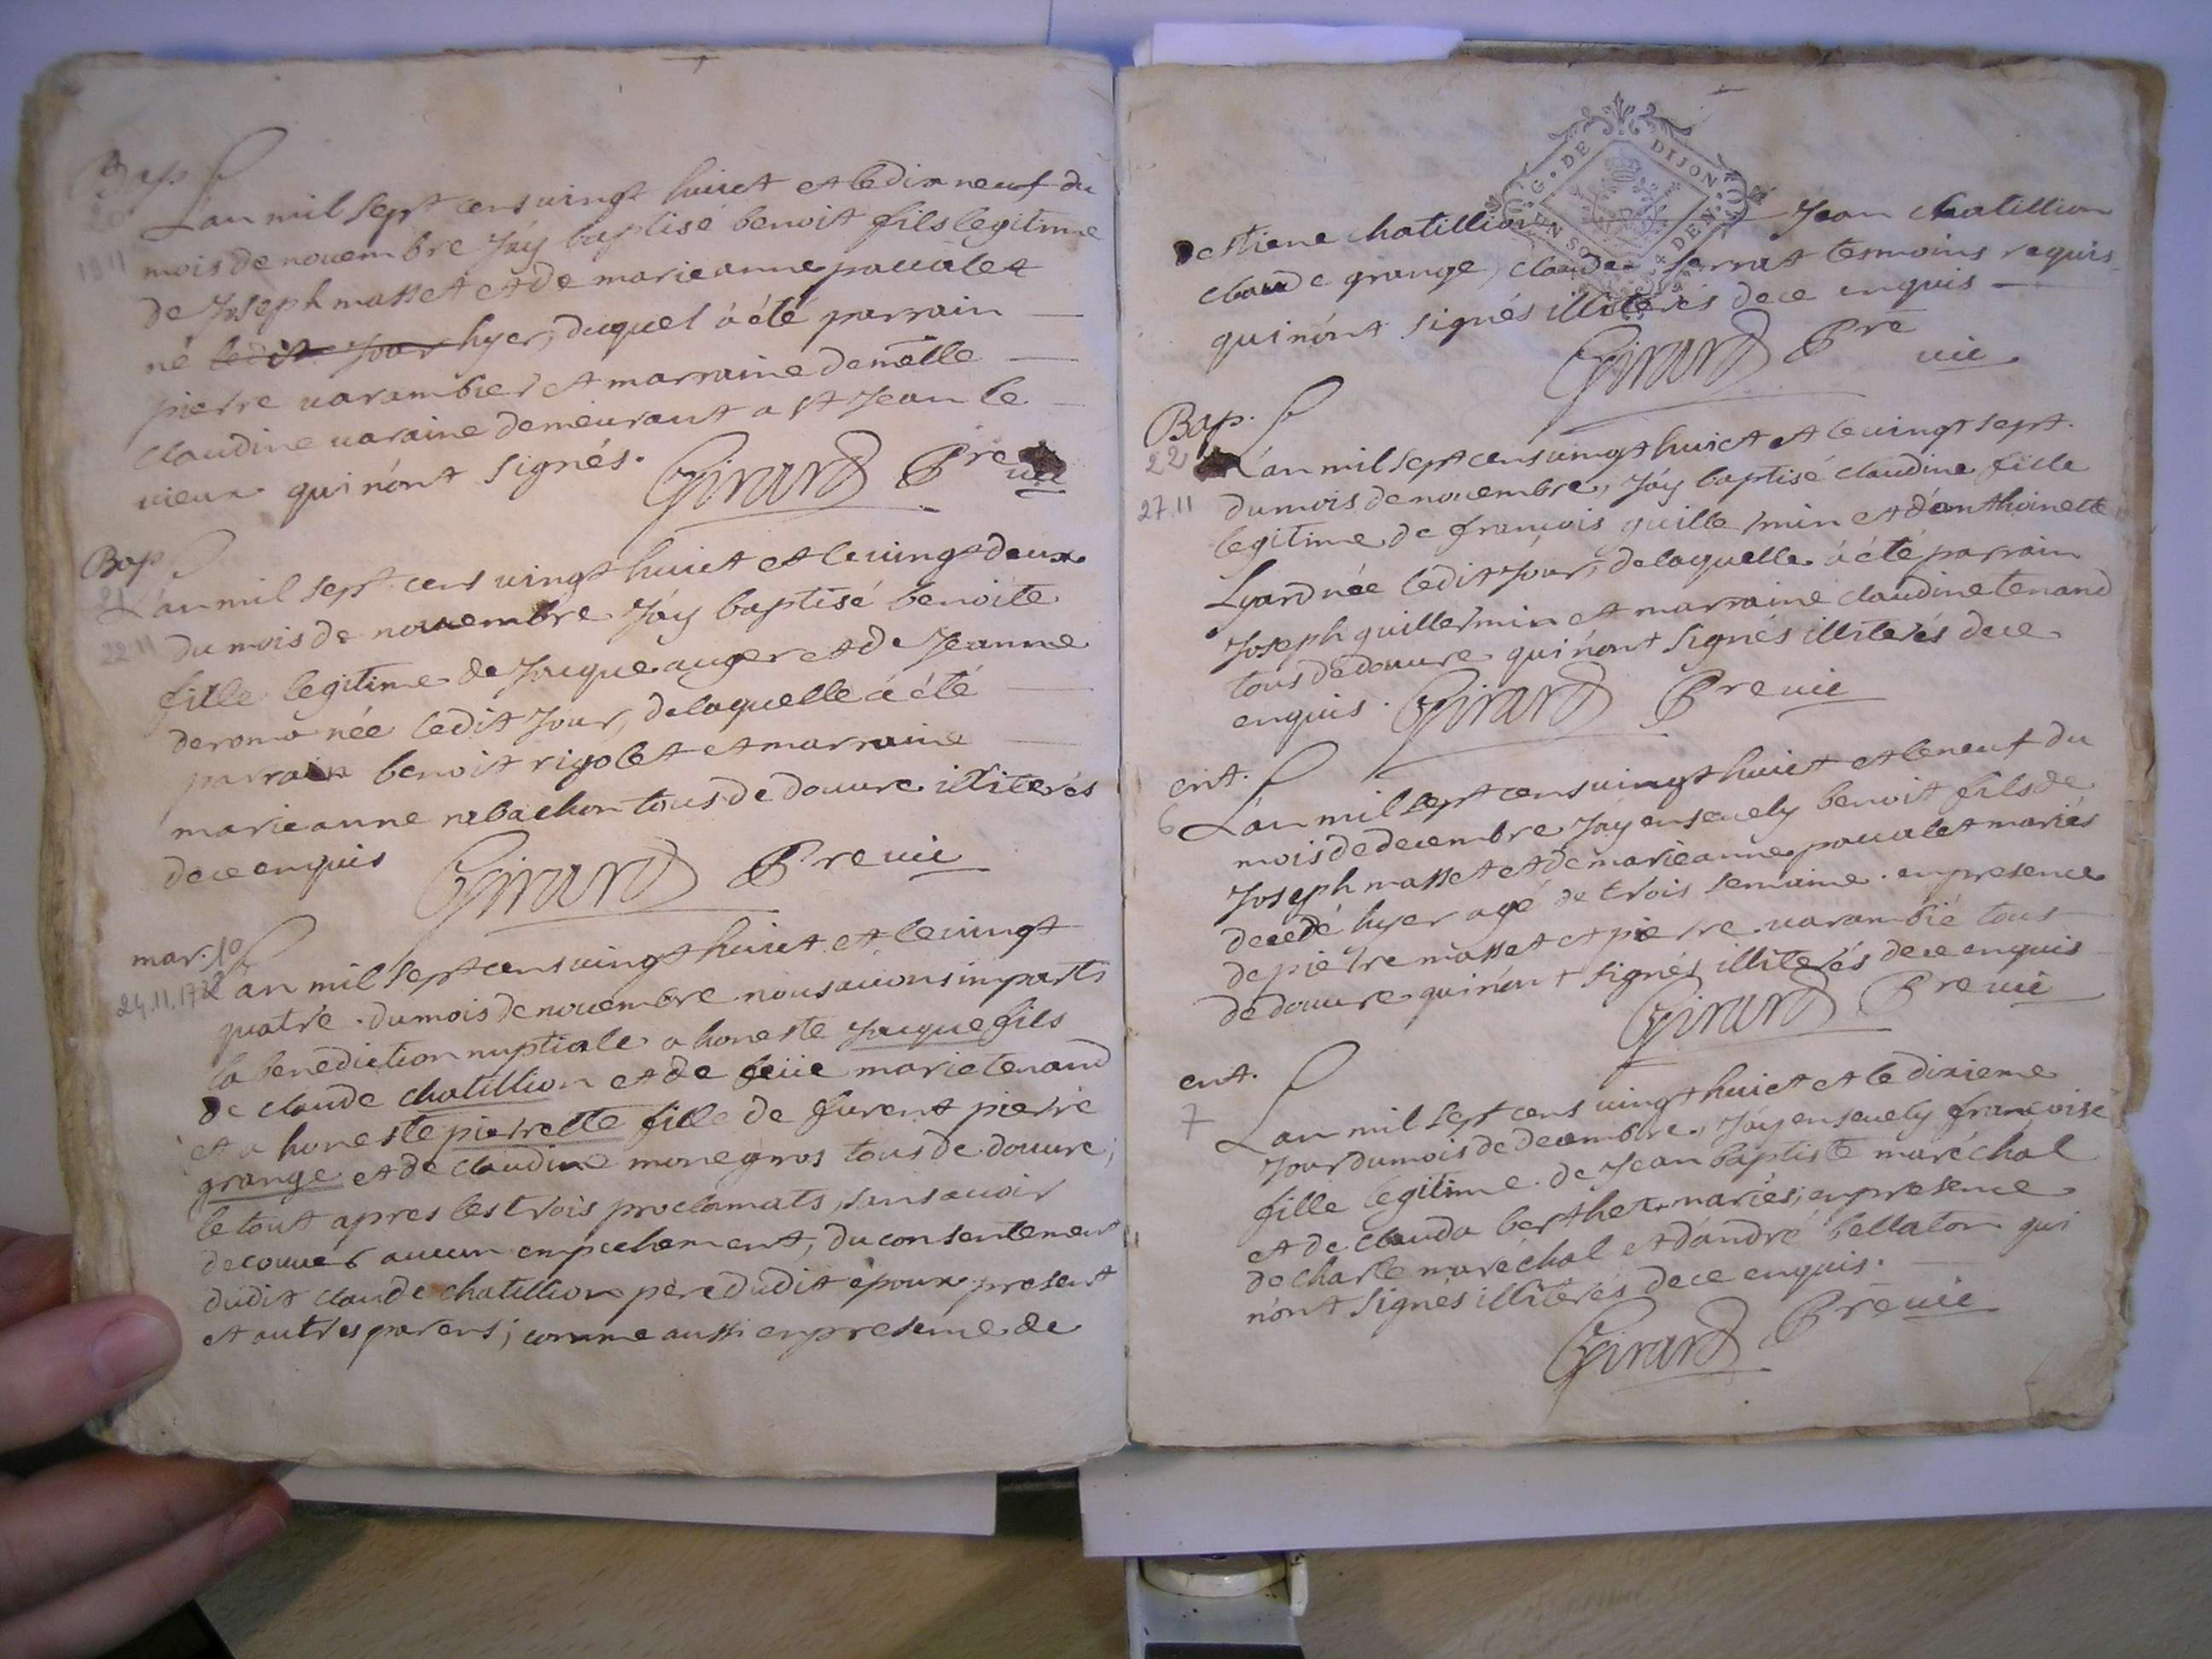 Bap
20
19 11
L'an mil sept cens vingt huict et le dix neuf du
mois de novembre J'ay baptisé benoit fils legitime
de Joseph masset et de marie anne pauvalet
né ledit Jour hyer, duquel à été parrain
pierre varambier et marraine demelle
claudine varaine demeurant a st Jean le
vieux qui n'ont signés. Girard Pre vic
Bap
21
22 11
L'an mil sept cens vingt huict et le vingt deux
du mois de novembre J'ay baptisé benoite
fille legitime de Jacque auger et de Jeanne
deroma née ledit Jour, de laquelle à été
parrain benoit rigolet et marraine
marie anne rabachon tous de douvre illiterés
de ce enquis Girard Pre vic
mar. 10
24.11.1728
L'an mil sept cens vingt huict et le vingt
quatre du mois de novembre nous avons imparti
la benediction nuptiale a honeste Jacque fils
de claude chatillion et de feüe marie tenand
et a honeste pierrette fille de furent pierre
grange et de claudine monegros tous de douvre;
le tout apres les trois proclamats, sans avoir
decouver aucun empechement, du consentement
dudit claude chatillion père dudit epoux present
et autres parens; comme aussi en presence de
G. DE DIJON
UN SOL
DEN.
destiene chatillion Jean chatillion
claude grange, claude serrat tesmoins requis
qui n'ont signés illiterés de ce enquis
Girard Pre vic
Bap.
22
27.11
L'an mil sept cens vingt huict et le vingt sept
du mois de novembre, J'ay baptisé claudine fille
legitime de francois guillermin et d'anthoinette
Lyard née ledit Jour, de laquelle à été parrain
Joseph guillermin et marraine claudine tenand
tous de douvre qui n'ont signés illiterés de ce
enquis. Girard Pre vic
ent.
6
L'an mil sept cens vingt huict et le neuf du
mois de decembre J'ay ensevely benoit fils de
Joseph masset et de marie anne pauvalet mariés
decedé hyer agé de trois semaine. en presence
de pierre masset et pierre varambié tous
de douvre qui n'ont signés illiterés de ce enquis
Girard Pre vic
ent.
7
L'an mil sept cens vingt huict et le dixieme
Jour du mois de decembre, J'ay ensevely francoise
fille legitime de Jean baptiste maréchal
et de clauda berthet mariés; en presence
de charle maréchal et d'andré bellaton qui
n'ont signés illiterés de ce enquis.
Girard Pre vic